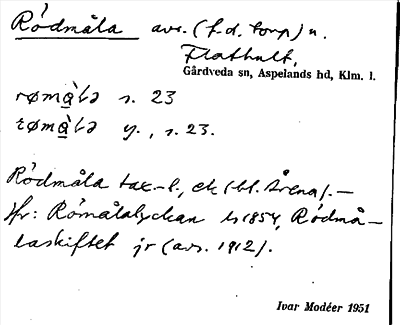 Rödmåla avs. (f.d. torp) u.
Flathult,
Gårdveda sn, Aspelands hd, Klm. l.
s. 23
y., s. 23.
Rödmåla tax.-l., ek (bl. Årena). —
Jfr: Römålalyckan ls 1854, Rödmå-
laskiftet jr (avs. 1912).
Ivar Modéer 1951